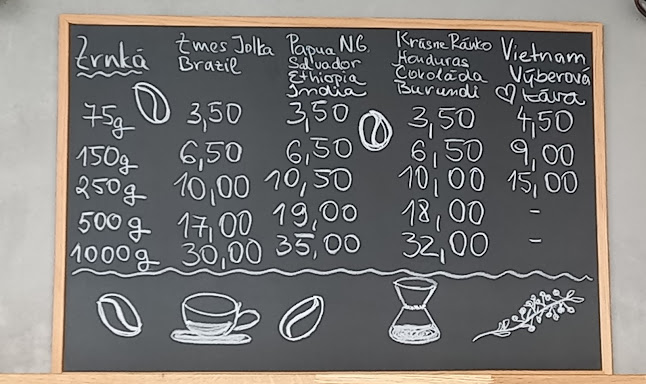 Zrnká Zmes Jolka Papua N.G. Krásne Ránko Vietnam
Brazil Salvador Honduras Výberová
Ethiopia Čokoláda ♡ káva
India Burundi
75g 3,50 3,50 3,50 4,50
150g 6,50 6,50 6,50 9,00
250g 10,00 10,50 10,00 15,00
500g 17,00 19,00 18,00 -
1000g 30,00 35,00 32,00 -